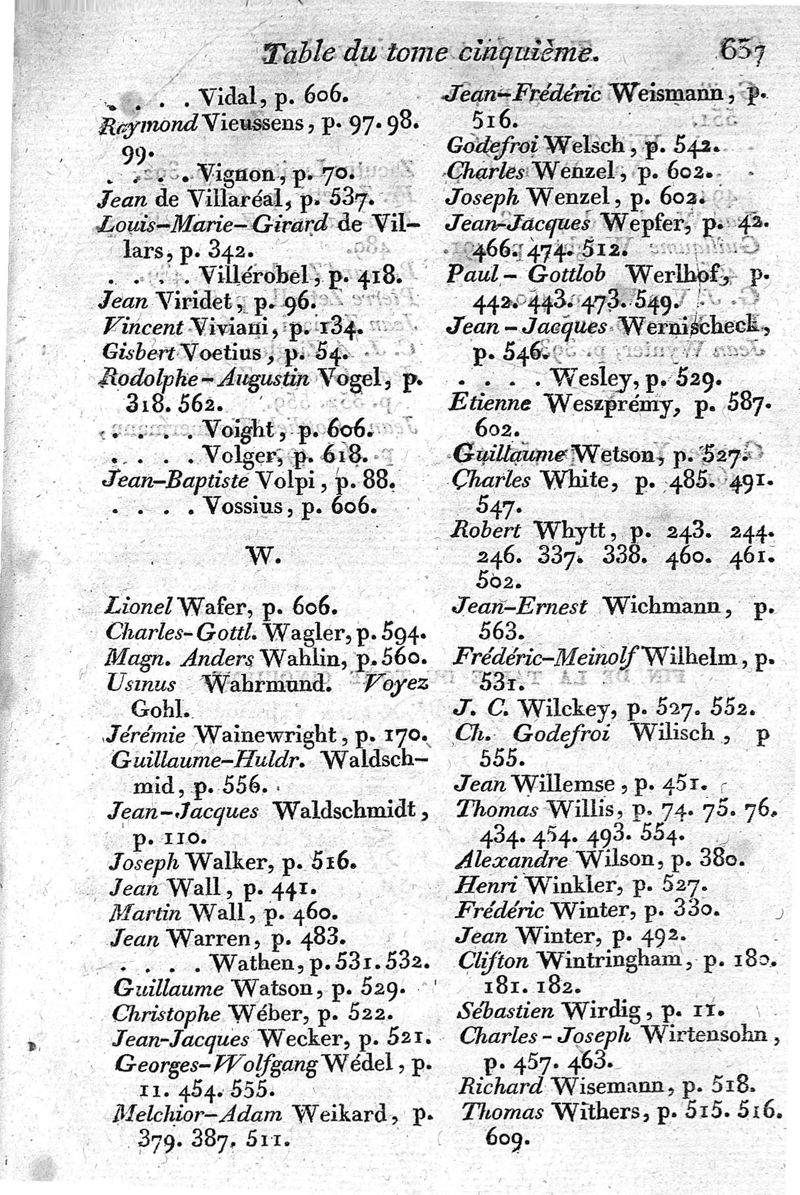 Table du tome cinquième. 637
. . . . Vidal, p. 606.
Raymond Vieussens, p. 97. 98.
99.
. . . . Vignon, p. 70.
Jean de Villaréal, p. 537.
Louis-Marie-Girard de Vil-
lars, p. 342.
. . . . Villérobel, p. 418.
Jean Viridet, p. 96.
Vincent Viviani, p. 134.
Gisbert Voetius, p. 54.
Rodolphe-Augustin Vogel, p.
318. 562.
. . . . Voight, p. 606.
. . . . Volger, p. 618.
Jean-Baptiste Volpi, p. 88.
. . . . Vossius, p. 606.
W.
Lionel Wafer, p. 606.
Charles-Gottl. Wagler, p. 594.
Magn. Anders Wahlin, p. 560.
Usinus Wahrmund. Voyez
Gohl.
Jérémie Wainewright, p. 170.
Guillaume-Huldr. Waldsch-
mid, p. 556.
Jean-Jacques Waldschmidt,
p. 110.
Joseph Walker, p. 516.
Jean Wall, p. 441.
Martin Wall, p. 460.
Jean Warren, p. 483.
. . . . Wathen, p. 531. 532.
Guillaume Watson, p. 529.
Christophe Wéber, p. 522.
Jean-Jacques Wecker, p. 521.
Georges-Wolfgang Wédel, p.
11. 454. 555.
Melchior-Adam Weikard, p.
379. 387. 511.
Jean-Frédéric Weismann, p.
516.
Godefroi Welsch, p. 542.
Charles Wenzel, p. 602.
Joseph Wenzel, p. 602.
Jean-Jacques Wepfer, p. 42.
466. 474. 512.
Paul-Gottlob Werlhof, p.
442. 443. 473. 549.
Jean-Jacques Wernischeck,
p. 546.
. . . . Wesley, p. 529.
Etienne Weszprémy, p. 587.
602.
Guillaume Wetson, p. 527.
Charles White, p. 485. 491.
547.
Robert Whytt, p. 243. 244.
246. 337. 338. 460. 461.
502.
Jean-Ernest Wichmann, p.
563.
Frédéric-Meinolf Wilhelm, p.
531.
J. C. Wilckey, p. 527. 552.
Ch. Godefroi Wilisch, p
555.
Jean Willemse, p. 451.
Thomas Willis, p. 74. 75. 76.
434. 454. 493. 554.
Alexandre Wilson, p. 380.
Henri Winkler, p. 527.
Frédéric Winter, p. 330.
Jean Winter, p. 492.
Clifton Wintringham, p. 180.
181. 182.
Sébastien Wirdig, p. 11.
Charles-Joseph Wirtensohn,
p. 457. 463.
Richard Wisemann, p. 518.
Thomas Withers, p. 515. 516.
609.